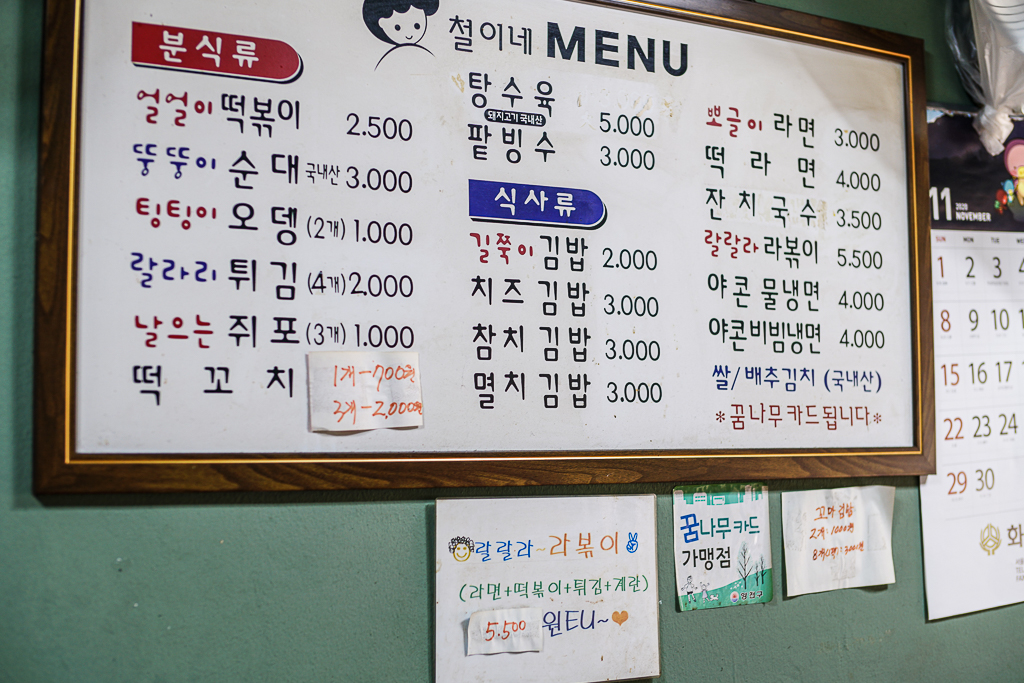 철이네 MENU
분식류
얼얼이 떡볶이 2.500
뚱뚱이 순대 국내산 3.000
팅팅이 오뎅 (2개) 1.000
랄라리 튀김 (4개) 2.000
날으는 쥐포 (3개) 1.000
떡꼬치
1개-700원
3개-2,000원
탕수육 5.000
돼지고기 국내산
팥빙수 3.000
식사류
길쭉이 김밥 2.000
치즈 김밥 3.000
참치 김밥 3.000
멸치 김밥 3.000
뽀글이 라면 3.000
떡라면 4.000
잔치국수 3.500
랄랄라 라볶이 5.500
야콘 물냉면 4.000
야콘비빔냉면 4.000
쌀/배추김치 (국내산)
*꿈나무카드됩니다*
랄랄라~라볶이
(라면+떡볶이+튀김+계란)
5.500 원EU~
꿈나무카드
가맹점
꼬마김밥
2개:1000원
11 2020
NOVEMBER
SUN MON TUE
1 2 3 4
8 9 10 11
15 16 17
22 23 24
29 30
화